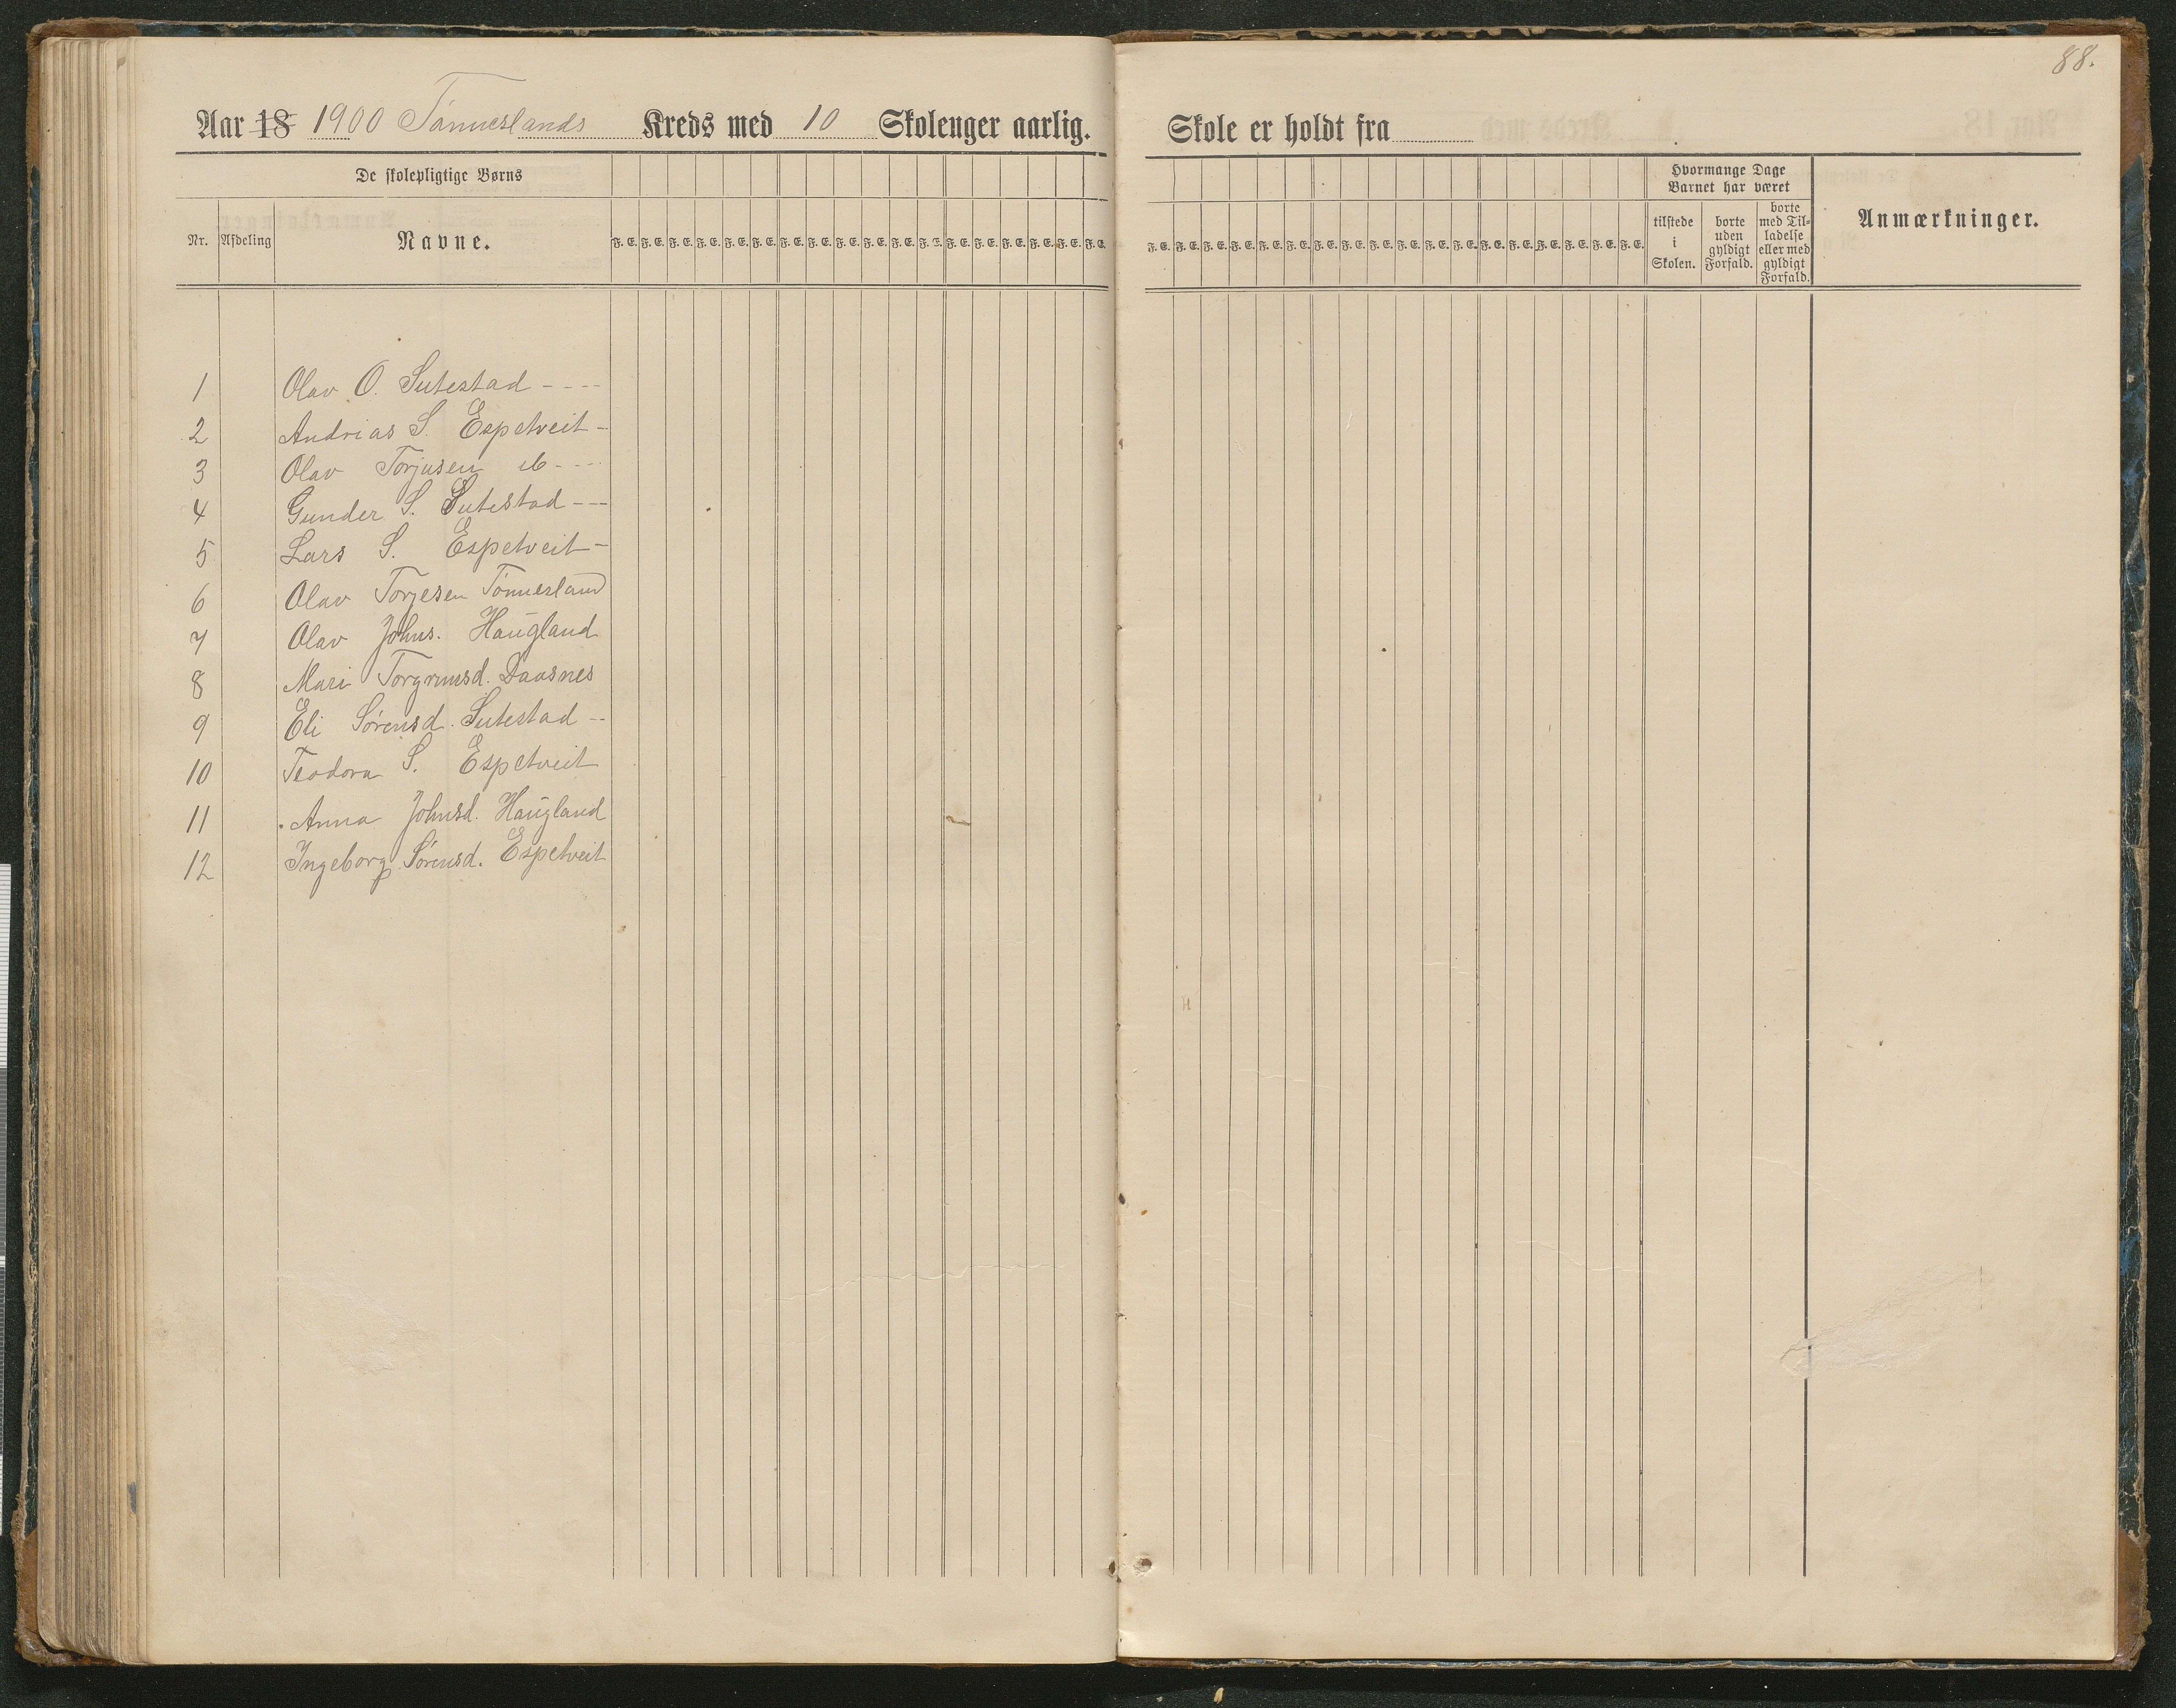 88.
Aar 18 1900 Tønneslands Kreds med 10 Skoleuger aarlig. Skole er holdt fra
De skolepligtige Børns
Hvormange Dage Barnet har været
Nr. Afdeling Navne. F. E. F. E. F. E. F. E. F. E. F. E. F. E. F. E. F. E. F. E. F. E. F. E. F. E. F. E. F. E. F. E. F. E. F. E.
F. E. F. E. F. E. F. E. F. E. F. E. F. E. F. E. F. E. F. E. F. E. F. E. F. E. F. E. F. E. F. E. F. E. F. E.
tilstede i Skolen.
borte uden gyldigt Forfald.
borte med Til-
ladelse
eller med
gyldigt
Forfald.
Anmærkninger.
1 Olav O. Sutestad - - - -
2 Andrias S. Espetveit -
3 Olav Torjusen ib - - -
4 Gunder S. Sutestad - - -
5 Lars S. Espetveit -
6 Olav Torjesen Tønnesland
7 Olav Johns. Haugland
8 Mari Torgrimsd. Daasnes
9 Eli Sørensd. Sutestad - -
10 Teodora S. Espetveit
11 Anna Johnsd. Haugland
12 Ingeborg Sørensd. Espetveit